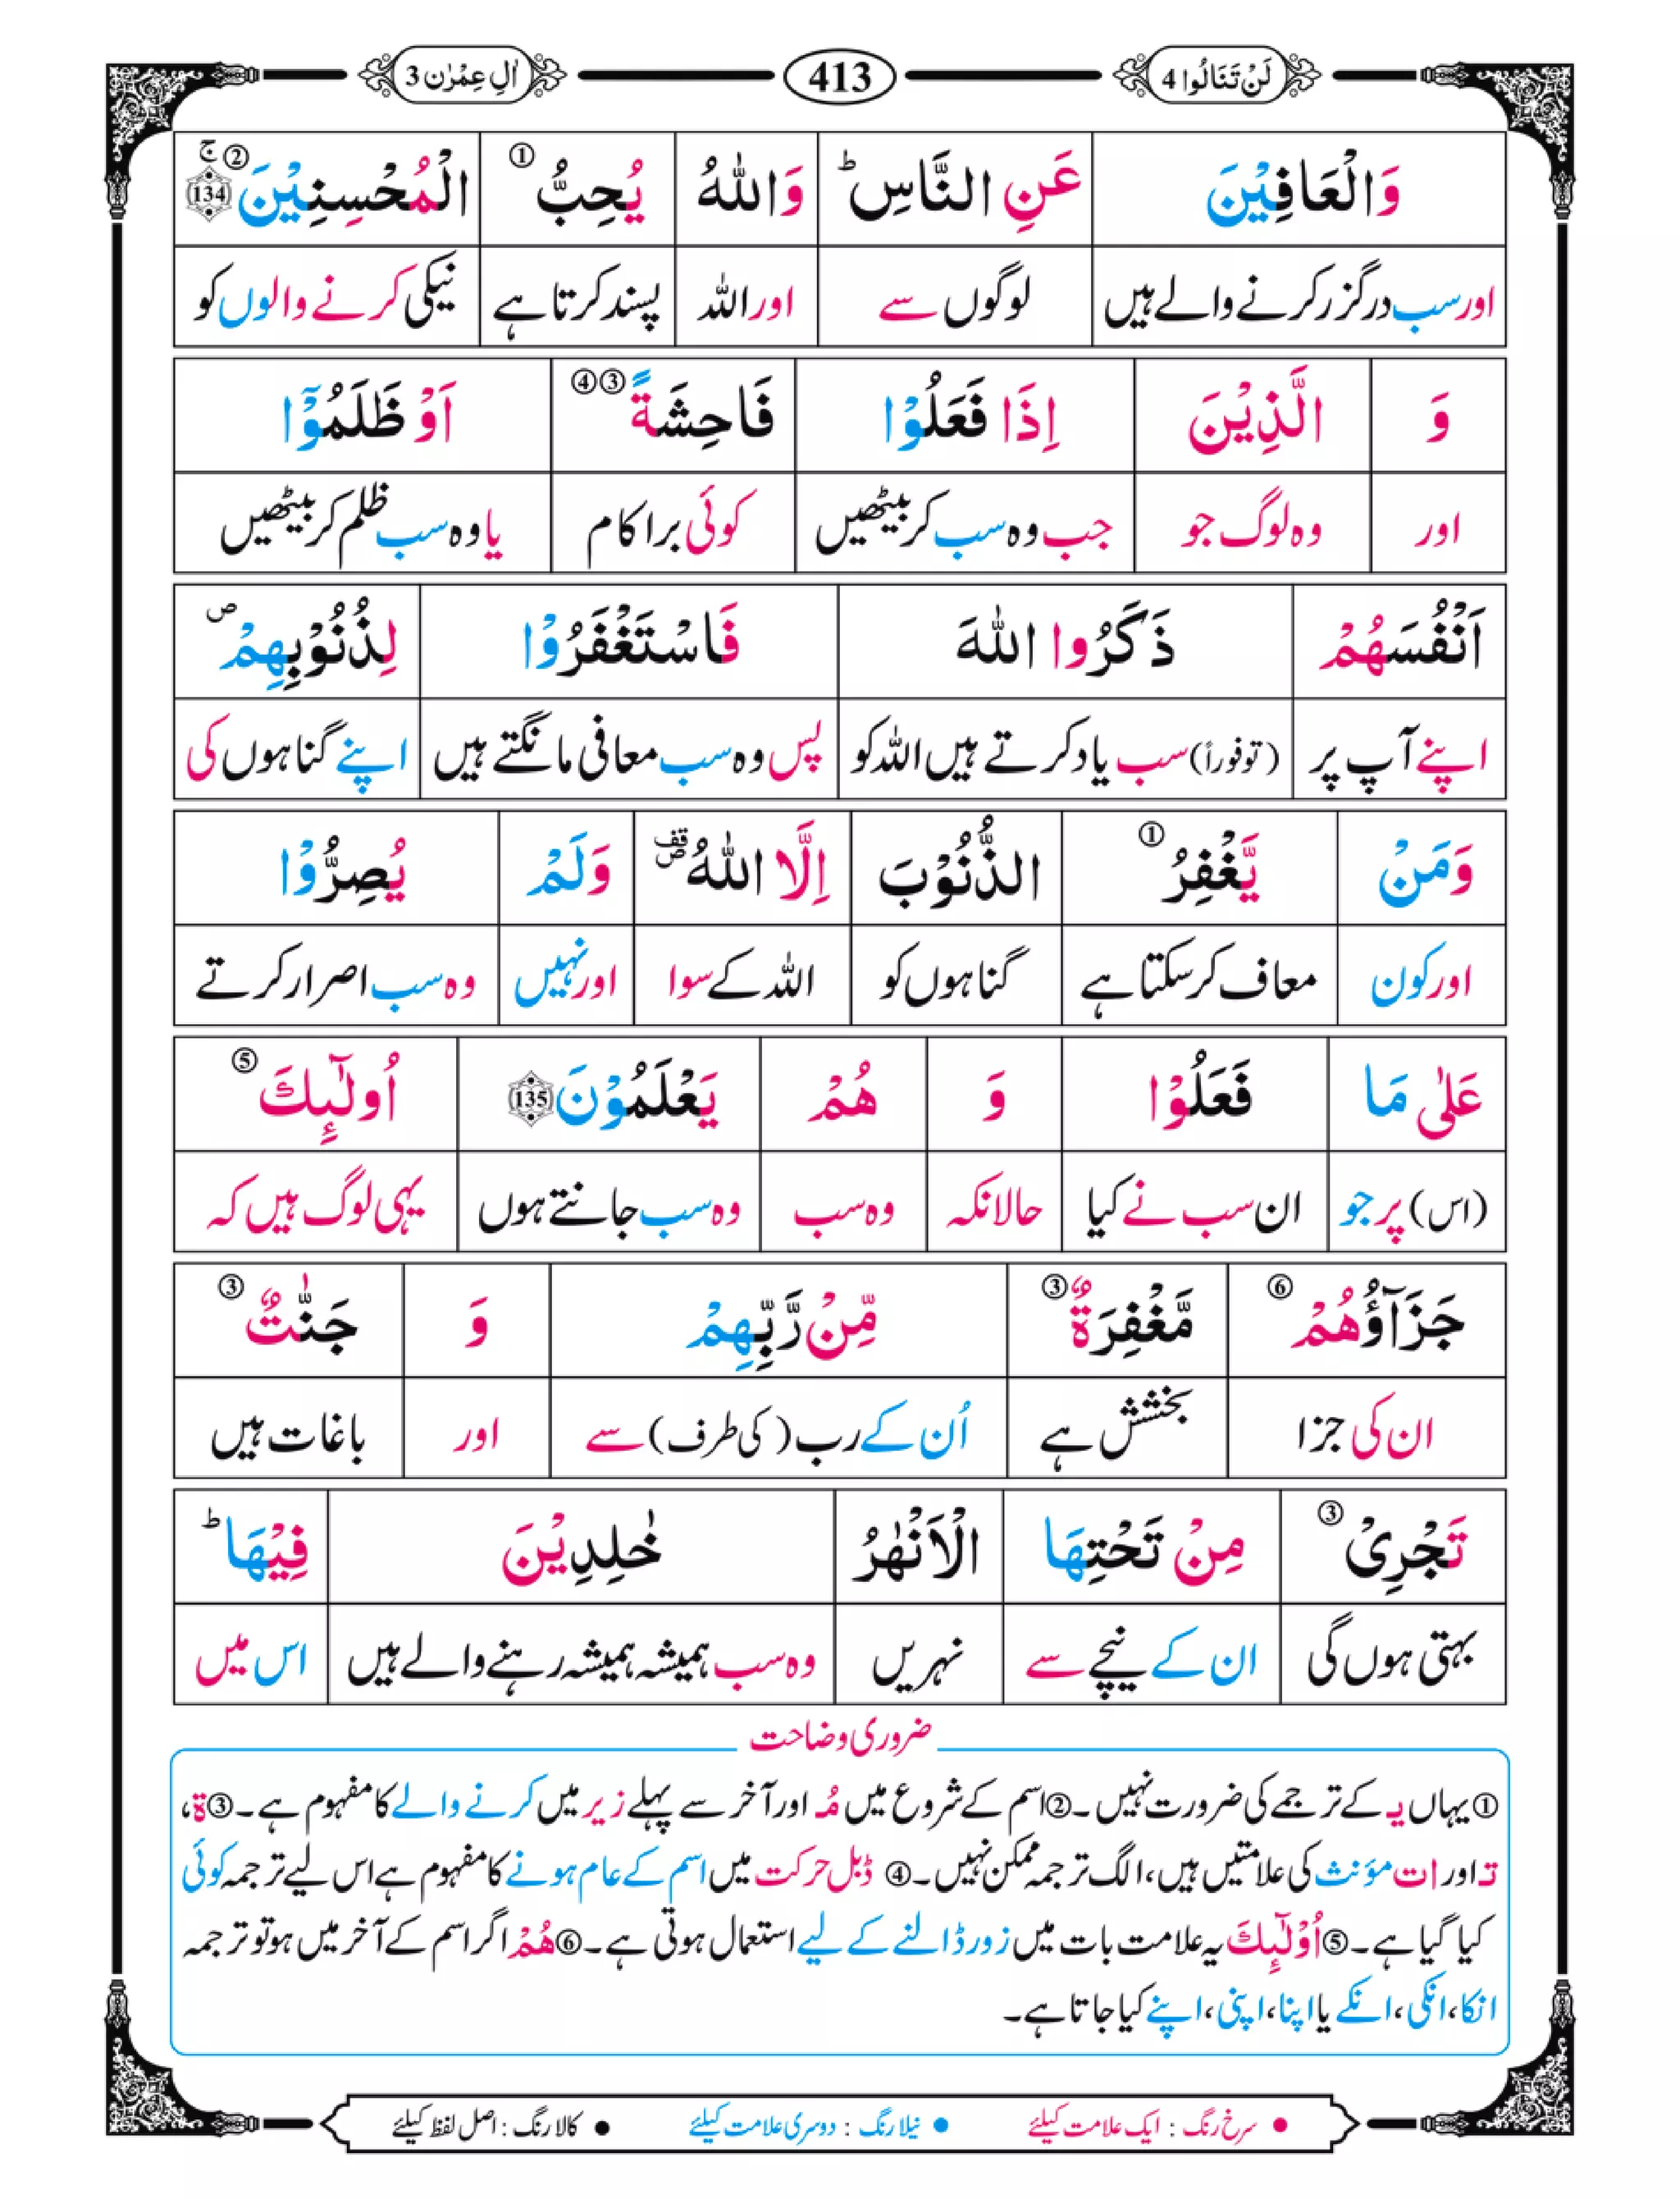 لَنْ تَنَالُوا 4 413 اٰلِ عِمْرٰن 3
وَالْعَافِيْنَ عَنِ النَّاسِ ؕ وَاللّٰهُ يُحِبُّ ① الْمُحْسِنِيْنَ ② ۚ 134
اور سب درگزر کرنے والے ہیں لوگوں سے اور اللہ پسند کرتا ہے نیکی کرنے والوں کو
وَ الَّذِيْنَ اِذَا فَعَلُوْا فَاحِشَةً ③④ اَوْ ظَلَمُوْۤا
اور وہ لوگ جو جب وہ سب کر بیٹھیں کوئی برا کام یا وہ سب ظلم کر بیٹھیں
اَنْفُسَهُمْ ذَكَرُوا اللّٰهَ فَاسْتَغْفَرُوْا لِذُنُوْبِهِمْ ۪
اپنے آپ پر (تو فوراً) سب یاد کرتے ہیں اللہ کو پس وہ سب معافی مانگتے ہیں اپنے گناہوں کی
وَمَنْ يَّغْفِرُ ① الذُّنُوْبَ اِلَّا اللّٰهُ ۪۫ وَلَمْ يُصِرُّوْا
اور کون معاف کر سکتا ہے گناہوں کو اللہ کے سوا اور نہیں وہ سب اصرار کرتے
عَلٰى مَا فَعَلُوْا وَ هُمْ يَعْلَمُوْنَ 135 اُولٰٓئِكَ ⑤
(اس) پر جو ان سب نے کیا حالانکہ وہ سب وہ سب جانتے ہوں یہی لوگ ہیں کہ
جَزَآؤُهُمْ ⑥ مَّغْفِرَةٌ ③ مِّنْ رَّبِّهِمْ وَ جَنّٰتٌ ③
ان کی جزا بخشش ہے اُن کے رب (کی طرف) سے اور باغات ہیں
تَجْرِيْ ③ مِنْ تَحْتِهَا الْاَنْهٰرُ خٰلِدِيْنَ فِيْهَا ؕ
بہتی ہوں گی ان کے نیچے سے نہریں وہ سب ہمیشہ ہمیشہ رہنے والے ہیں اس میں
ضروری وضاحت
① یہاں یـ کے ترجمے کی ضرورت نہیں۔ ② اسم کے شروع میں مُـ اور آخر سے پہلے زیر میں کرنے والے کا مفہوم ہے۔ ③ ة،
تـ اور ات مؤنث کی علامتیں ہیں، الگ ترجمہ ممکن نہیں۔ ④ ڈبل حرکت میں اسم کے عام ہونے کا مفہوم ہے اس لیے ترجمہ کوئی
کیا گیا ہے۔ ⑤ اُوْلٰٓئِكَ یہ علامت بات میں زور ڈالنے کے لیے استعمال ہوتی ہے۔ ⑥ هُمْ اگر اسم کے آخر میں ہو تو ترجمہ
انکا، انکی، انکے یا اپنا، اپنی، اپنے کیا جاتا ہے۔
● سرخ رنگ : ایک علامت کیلئے ● نیلا رنگ : دوسری علامت کیلئے ● کالا رنگ : اصل لفظ کیلئے